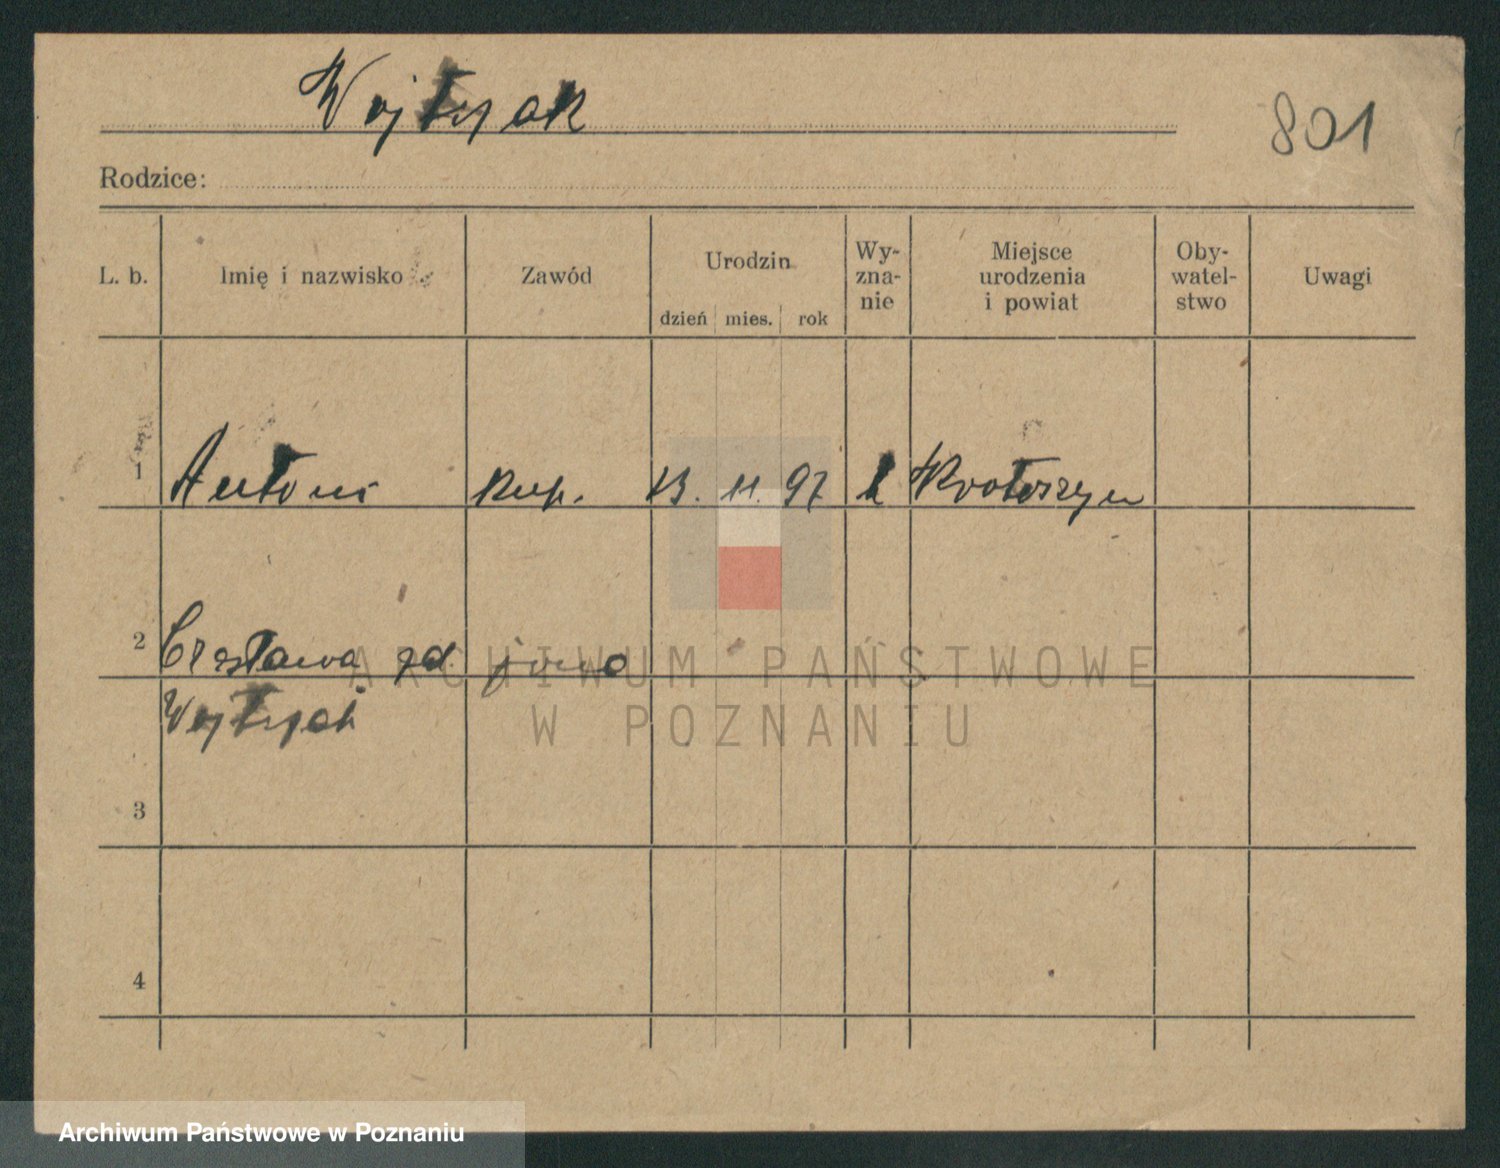 Wojtysak
801
Rodzice:
L. b. Imię i nazwisko Zawód Urodzin dzień mies. rok Wy-zna-nie Miejsce urodzenia i powiat Oby-watel-stwo Uwagi
1 Antoni kup. 13. 11. 97 Krotoszyn
2 Czesława zd.
3
4
ARCHIWUM PAŃSTWOWE
W POZNANIU
Archiwum Państwowe w Poznaniu